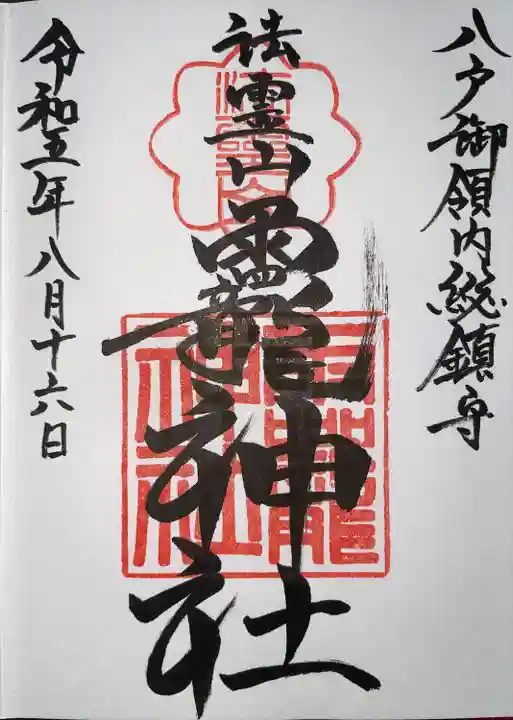 八戸御領内総鎮守
法霊山龗神社
令和五年八月十六日